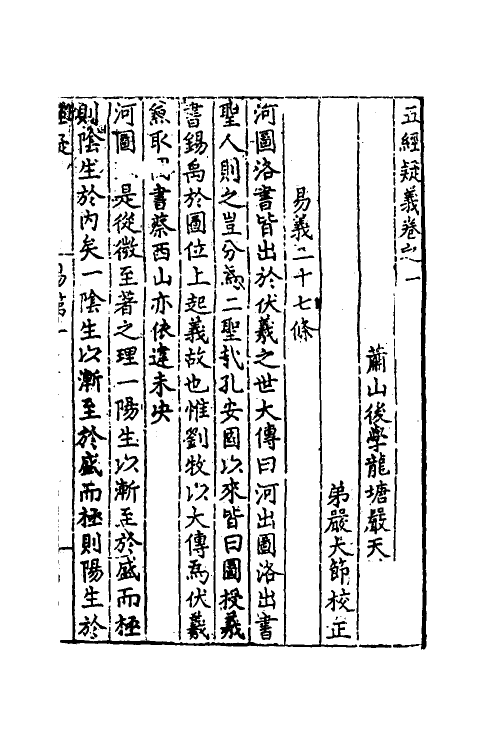 五經疑義卷之一
蕭山後學龍塘嚴天
弟嚴大節校正
易義二十七條
河圖洛書皆出於伏羲之世大傳曰河出圖洛出書
聖人則之豈分爲二聖哉孔安國以來皆曰圖授羲
書錫禹於圖位上起義故也惟劉牧以大傳爲伏羲
兼取書蔡西山亦依違未決
河圖是從微至著之理一陽生以漸至於盛而極
則陰生於內矣一陰生以漸至於盛而極則陽生於